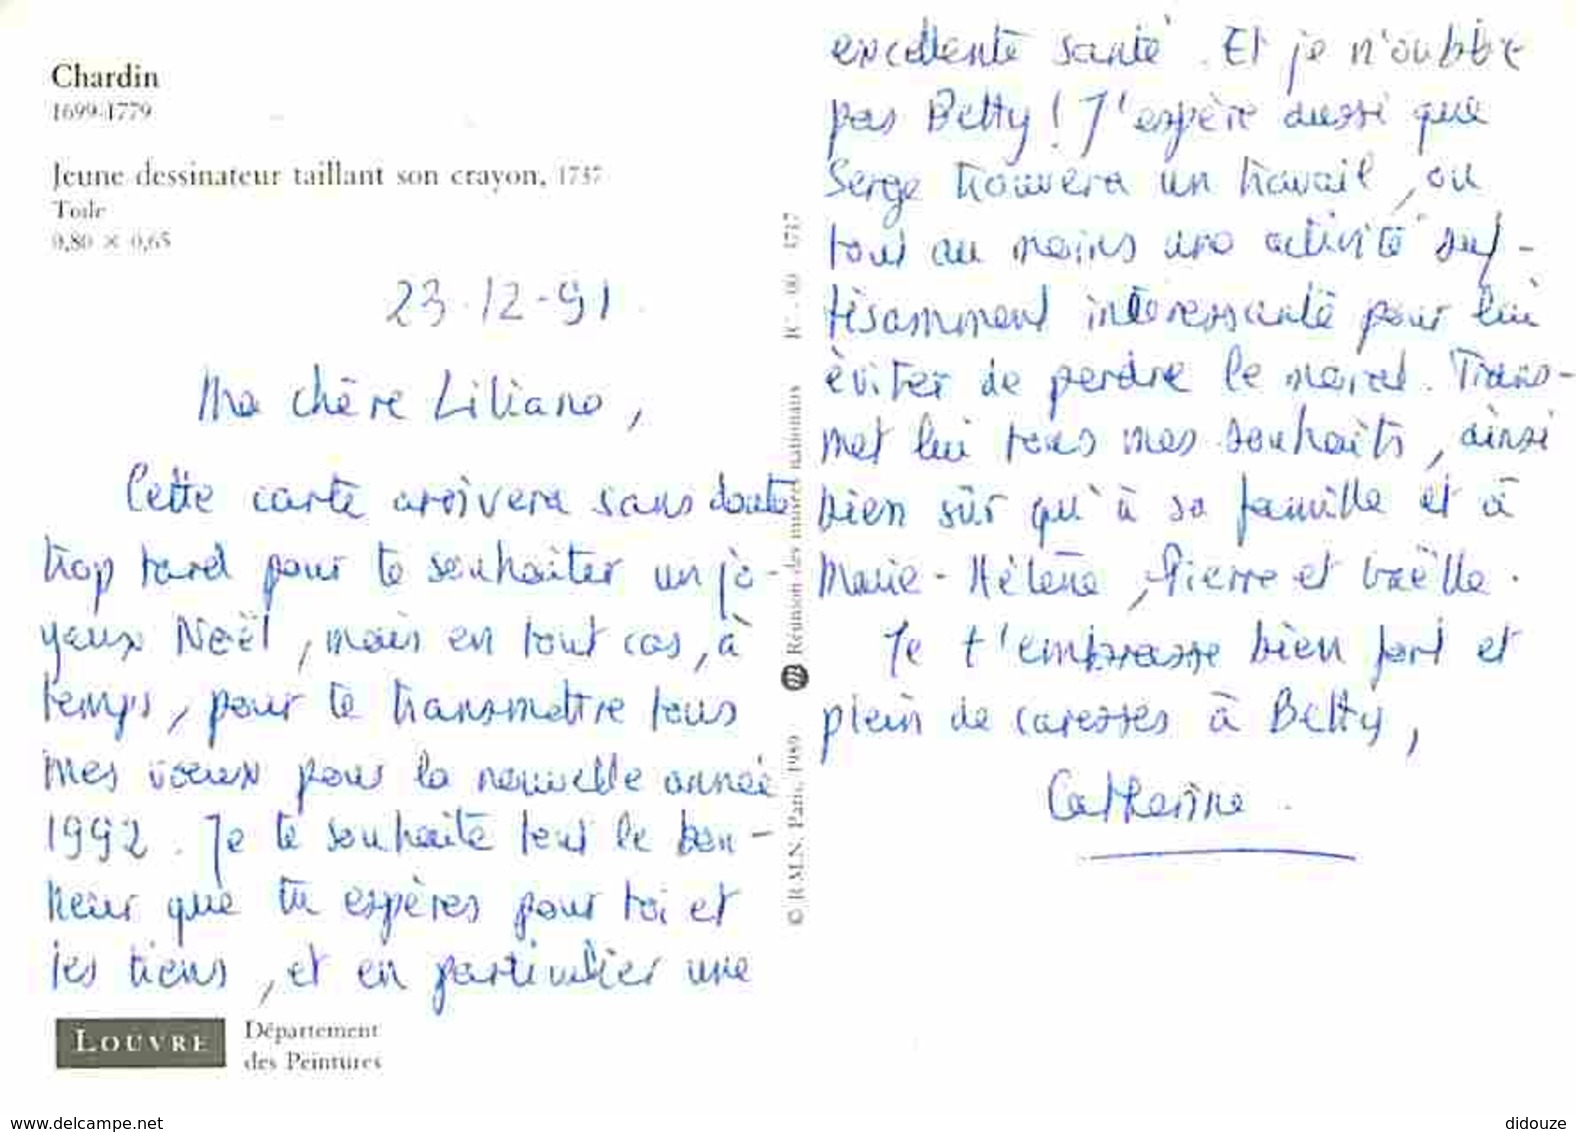 Chardin
1699-1779
Jeune dessinateur taillant son crayon, 1737
Toile
0,80 × 0,65
23-12-91
Ma chère Liliane,
Cette carte arrivera sans doute
trop tard pour te souhaiter un jo-
yeux Noël, mais en tout cas, à
temps, pour te transmettre tous
mes voeux pour la nouvelle année
1992. Je te souhaite tout le bon-
heur que tu espères pour toi et
les tiens, et en particulier une
LOUVRE
Département
des Peintures
© R.M.N. Paris, 1989 Réunion des musées nationaux IC - 00
excellente santé. Et je n'oublie
pas Betty! J'espère aussi que
Serge trouvera un travail, ou
tout au moins une activité suf-
fisamment intéressante pour lui
éviter de perdre le moral. Trans-
met lui tous mes souhaits, ainsi
bien sûr qu'à sa famille et à
Marie-Hélène, Pierre et Gaëlle.
Je t'embrasse bien fort et
plein de caresses à Betty,
Catherine.
www.delcampe.net
didouze